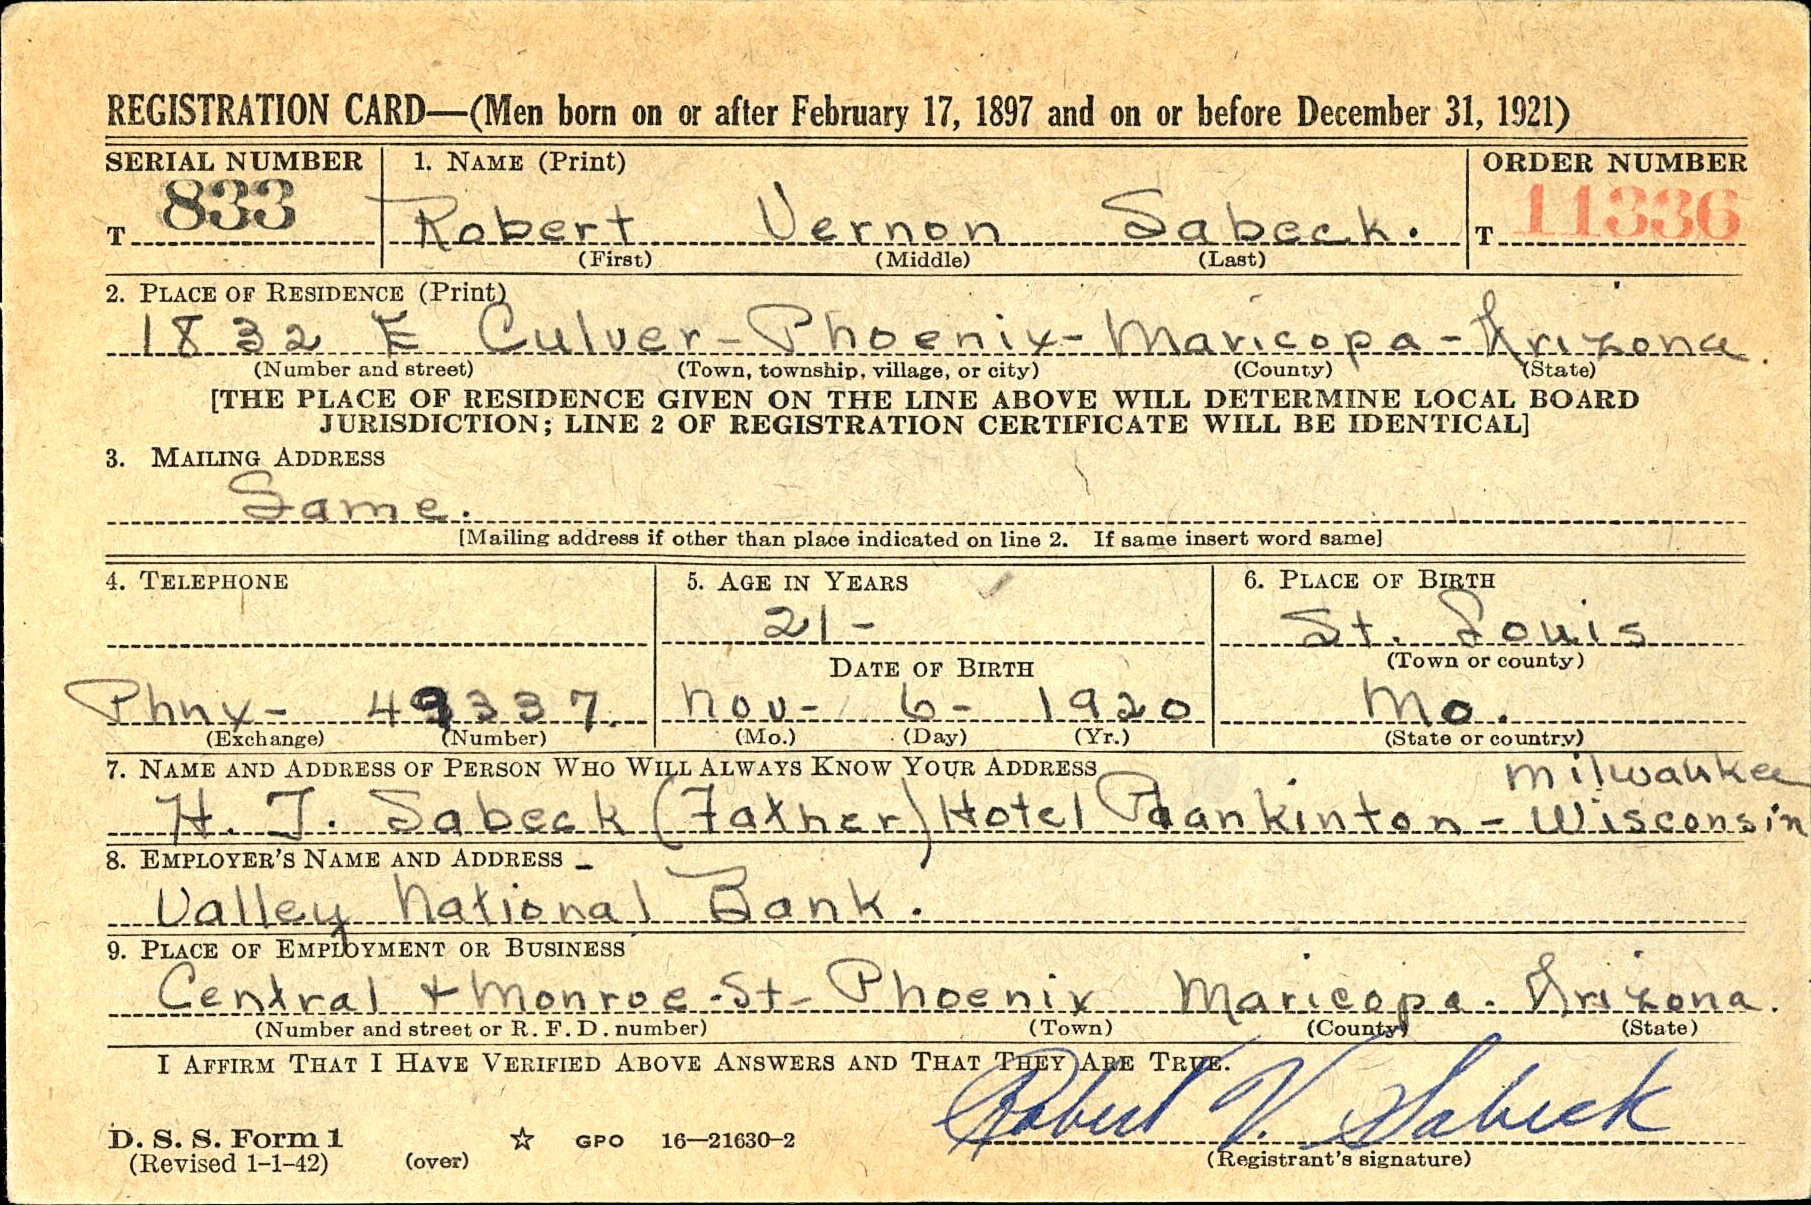 REGISTRATION CARD—(Men born on or after February 17, 1897 and on or before December 31, 1921)
SERIAL NUMBER 1. NAME (Print) ORDER NUMBER
T 833 Robert Vernon Sabeck. T 11336
(First) (Middle) (Last)
2. PLACE OF RESIDENCE (Print)
1832 E Culver - Phoenix - Maricopa - Arizona.
(Number and street) (Town, township, village, or city) (County) (State)
[THE PLACE OF RESIDENCE GIVEN ON THE LINE ABOVE WILL DETERMINE LOCAL BOARD
JURISDICTION; LINE 2 OF REGISTRATION CERTIFICATE WILL BE IDENTICAL]
3. MAILING ADDRESS
Same.
[Mailing address if other than place indicated on line 2. If same insert word same]
4. TELEPHONE 5. AGE IN YEARS 6. PLACE OF BIRTH
21- St. Louis
DATE OF BIRTH (Town or county)
Phnx- 49337. Nov- 6- 1920 Mo.
(Exchange) (Number) (Mo.) (Day) (Yr.) (State or country)
7. NAME AND ADDRESS OF PERSON WHO WILL ALWAYS KNOW YOUR ADDRESS Milwaukee
H. J. Sabeck (Father) Hotel Plankinton - Wisconsin
8. EMPLOYER'S NAME AND ADDRESS -
Valley National Bank.
9. PLACE OF EMPLOYMENT OR BUSINESS
Central + Monroe - St - Phoenix Maricopa - Arizona.
(Number and street or R. F. D. number) (Town) (County) (State)
I AFFIRM THAT I HAVE VERIFIED ABOVE ANSWERS AND THAT THEY ARE TRUE.
Robert V. Sabeck
D. S. S. Form 1 ☆ GPO 16—21630-2
(Revised 1-1-42) (over) (Registrant's signature)